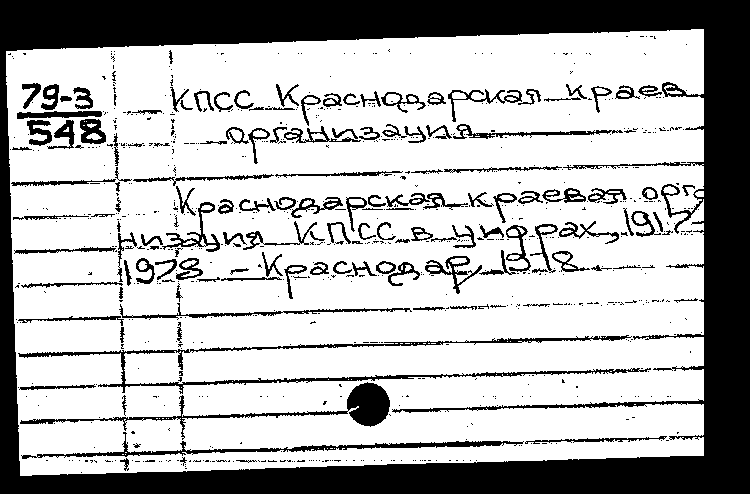 79-3
548
КПСС Краснодарская краев
организация
Краснодарская краевая орга
низация КПСС в цифрах, 1917-
1978 - Краснодар, 1978.